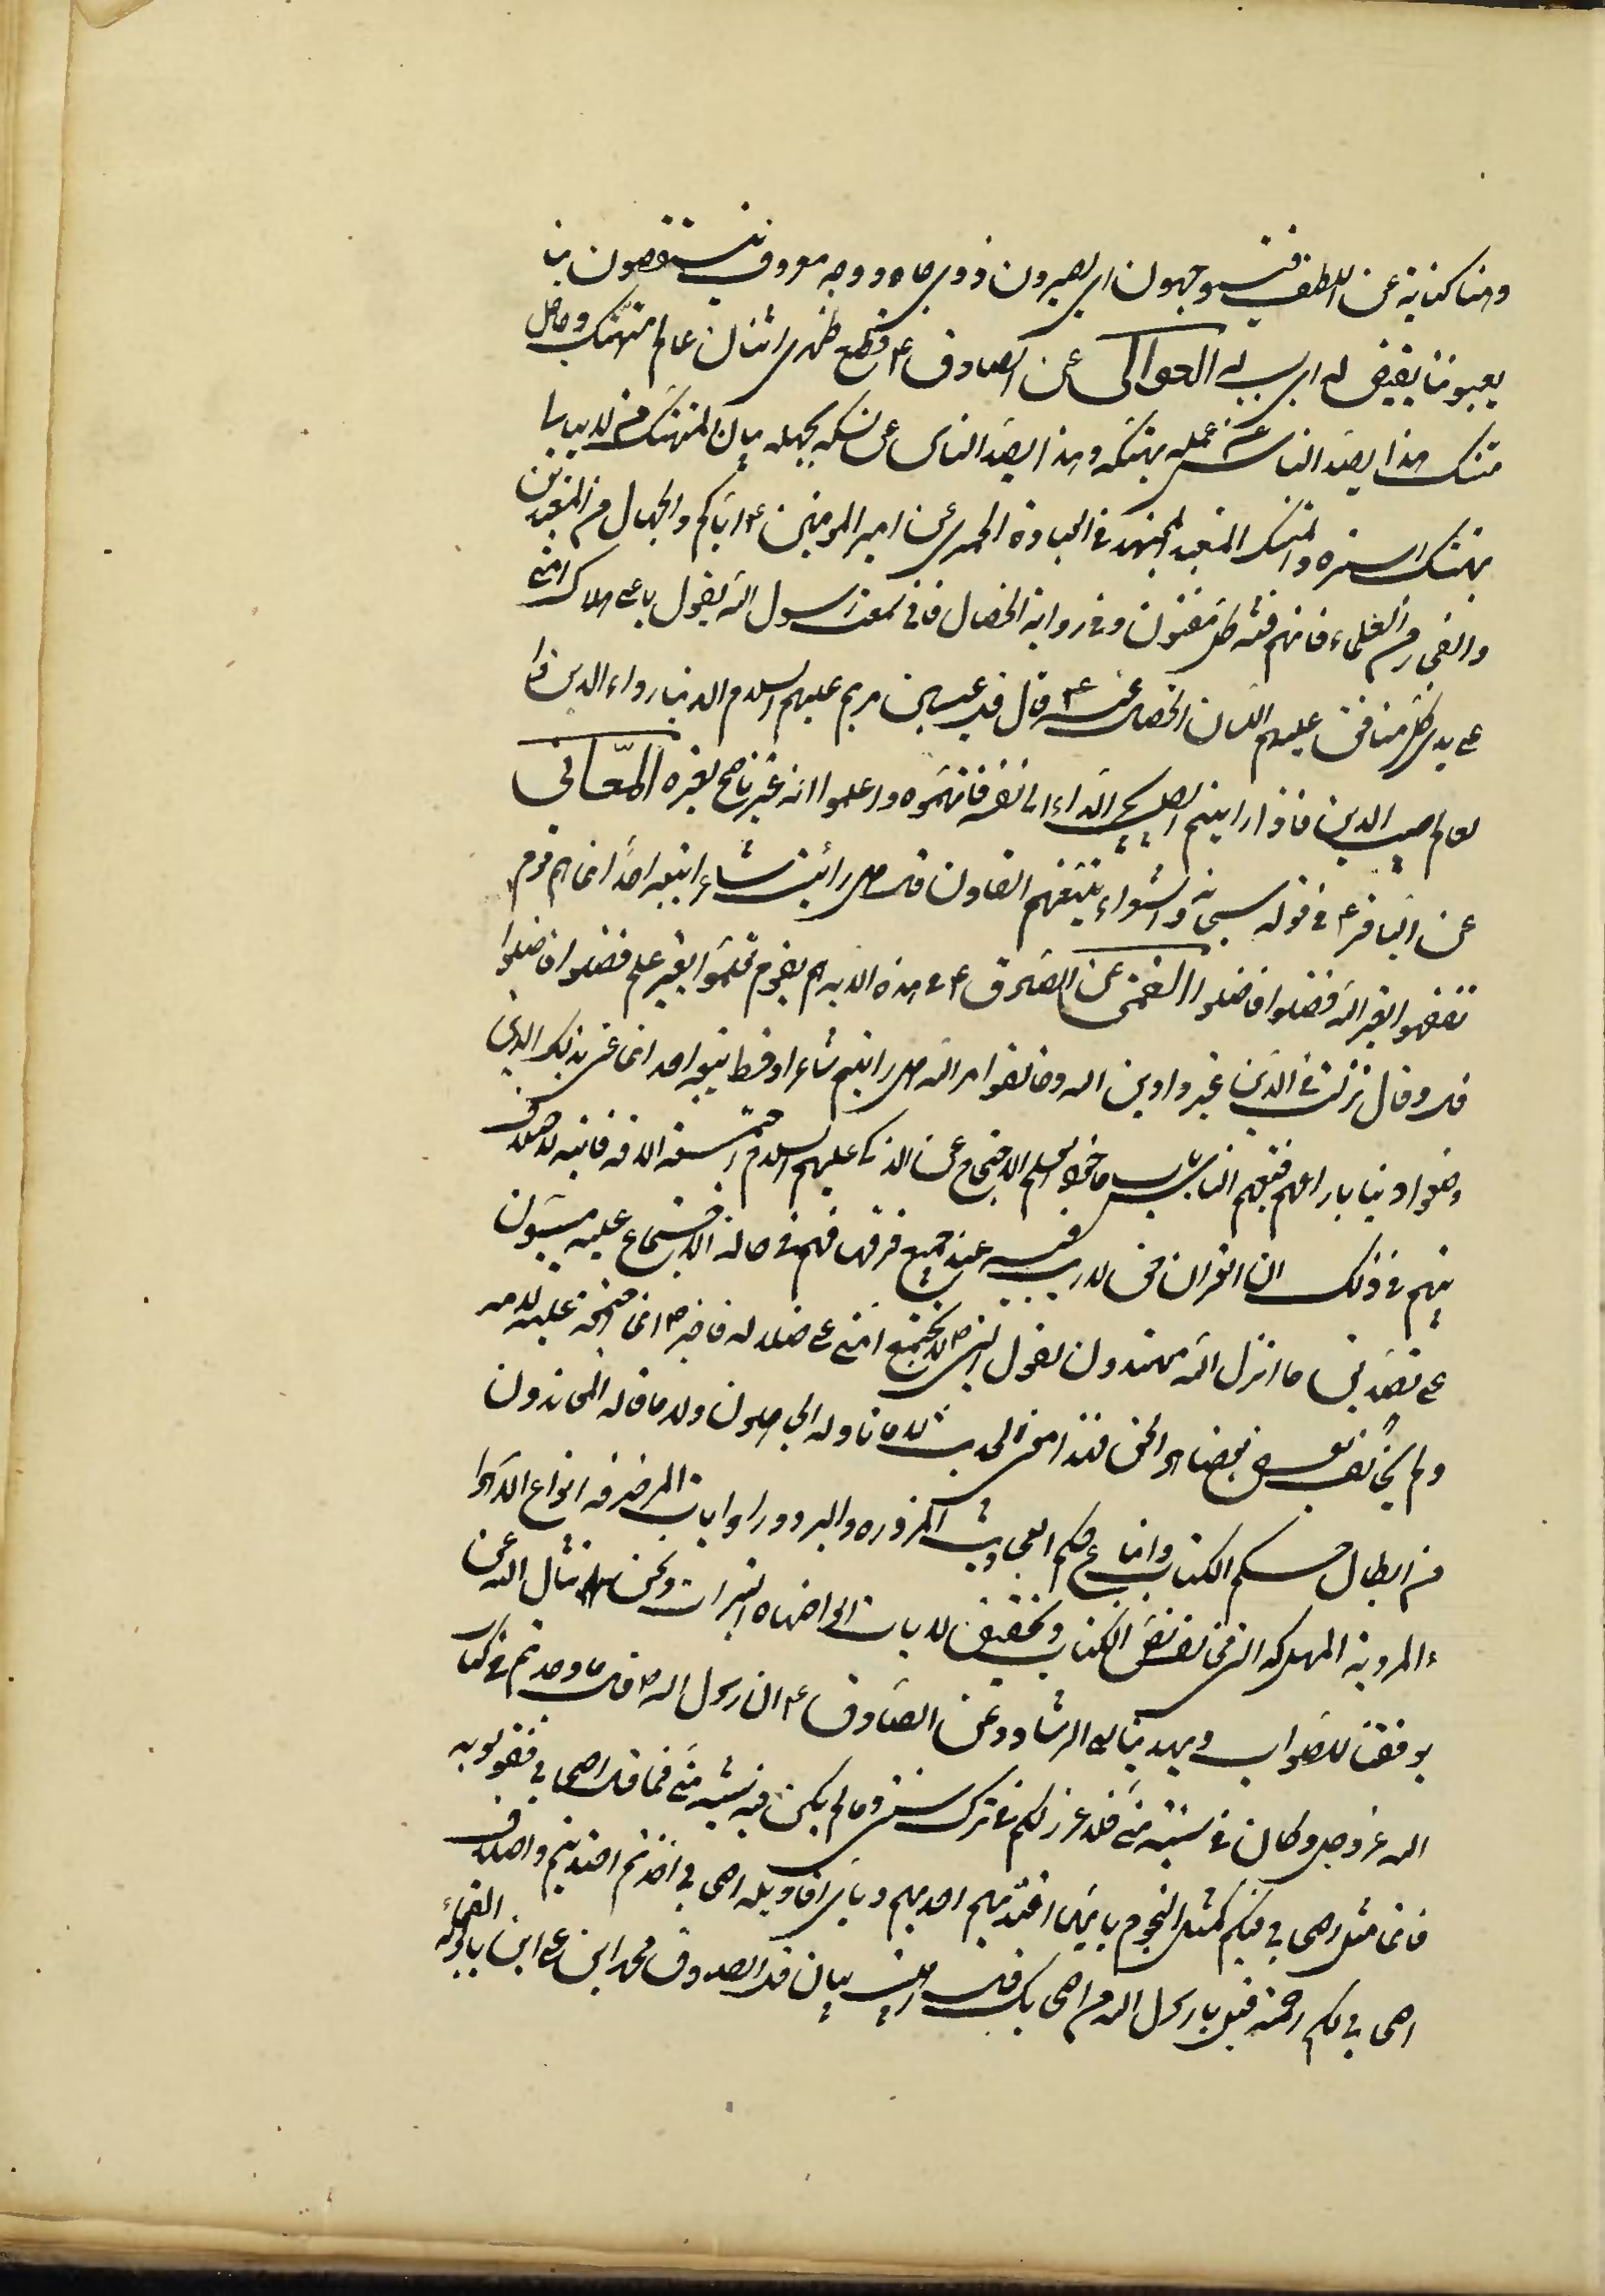 وهنا كناية عن اللطف فيتوجهون اى يصيرون ذوى جاه ووجه معروف ينتقصون بنا
يعيبوننا يقيض له اى يسبب له العوالى عن الصادق ع قطع ظهرى اثنان عالم متهتك وجاهل
متنسك هذا يصد الناس عن علمه بتهتكه وهذا يصد الناس عن نسكه بجهله بيان المتهتك من لا يبالى
بهتك استره والمتنسك المتعبد المجتهد فى العبادة الحميرى عن امير المومنين ع اياكم والجهال من المتعبدين
والفجار من العلماء فانهم فتنه كل مفتون وفى رواية الخصال فانى سمعت رسول الله يقول يا على هلاك امتى
على يدى كل منافق عليم اللسان الخصال عنه ع قال قال عيسى بن مريم عليهم السلام الدينار داء الدين
العالم طبيب الدين فاذا رايتم الطبيب يجر الداء الى نفسه فاتهموه واعلموا انه غير ناصح لغيره المعانى
عن الباقر ع فى قوله سبحانه والشعراء يتبعهم الغاون قال هل رايت شاعر يتبعه احد انما هم قوم
تفقهوا لغير الله فضلوا فاضلوا القمى عن الصادق ع فى هذه الاية هم قوم تعلموا بغير علم فضلوا فاضلوا
قال وقال نزلت فى الذين غيروا دين الله وخالفوا امر الله هل رايتم شاعرا قط يتبعه احد انما عنى بذلك الذين
وضعوا دينا بارائهم فتبعهم الناس الاحتجاج عن الزكى عليهم السلام اجتمعت الامة قاطبة لا اختلاف
بينهم فى ذلك ان القران حق لا ريب فيه عند جميع فرقها فهم فى حالة الاجتماع عليه مصيبون
على تصديق ما انزل الله مهتدون لقول النبى ص لا يجتمع امتى على ضلالة فاخبر ص انما اجتمعت عليه الامه
ولم يخالف بعضها بعضا هو الحق فهذا معنى الحديث لا ما تاوله الجاهلون ولا ما قاله المعاندون
من ابطال حكم الكتاب واتباع حكم الاحاديث المزوره والروايات المزخرفه اتباع الاهواء
المردية المهلكه التى تخالف نص الكتاب وتحقيق الايات الواضحات النيرات ونحن نسال الله ان
يوفقنا للصواب ويهدينا الى الرشاد وعن الصادق ع ان رسول الله ص قال ما وجدتم فى كتاب
الله عز وجل وكان فى سنته منى فلا عذر لكم فى ترك سنتى وما لم يكن فيه سنته منى فما قال اصحابى فقولوا به
فانما مثل اصحابى فيكم كمثل النجوم بايها اخذتم اهتديتم وباى اقاويل اصحابى اخذتم اهتديتم واختلاف
اصحابى لكم رحمة قيل يا رسول الله من اصحابك قال اهل بيتى بيان قال الصدوق محمد ابن على ابن بابويه القمى